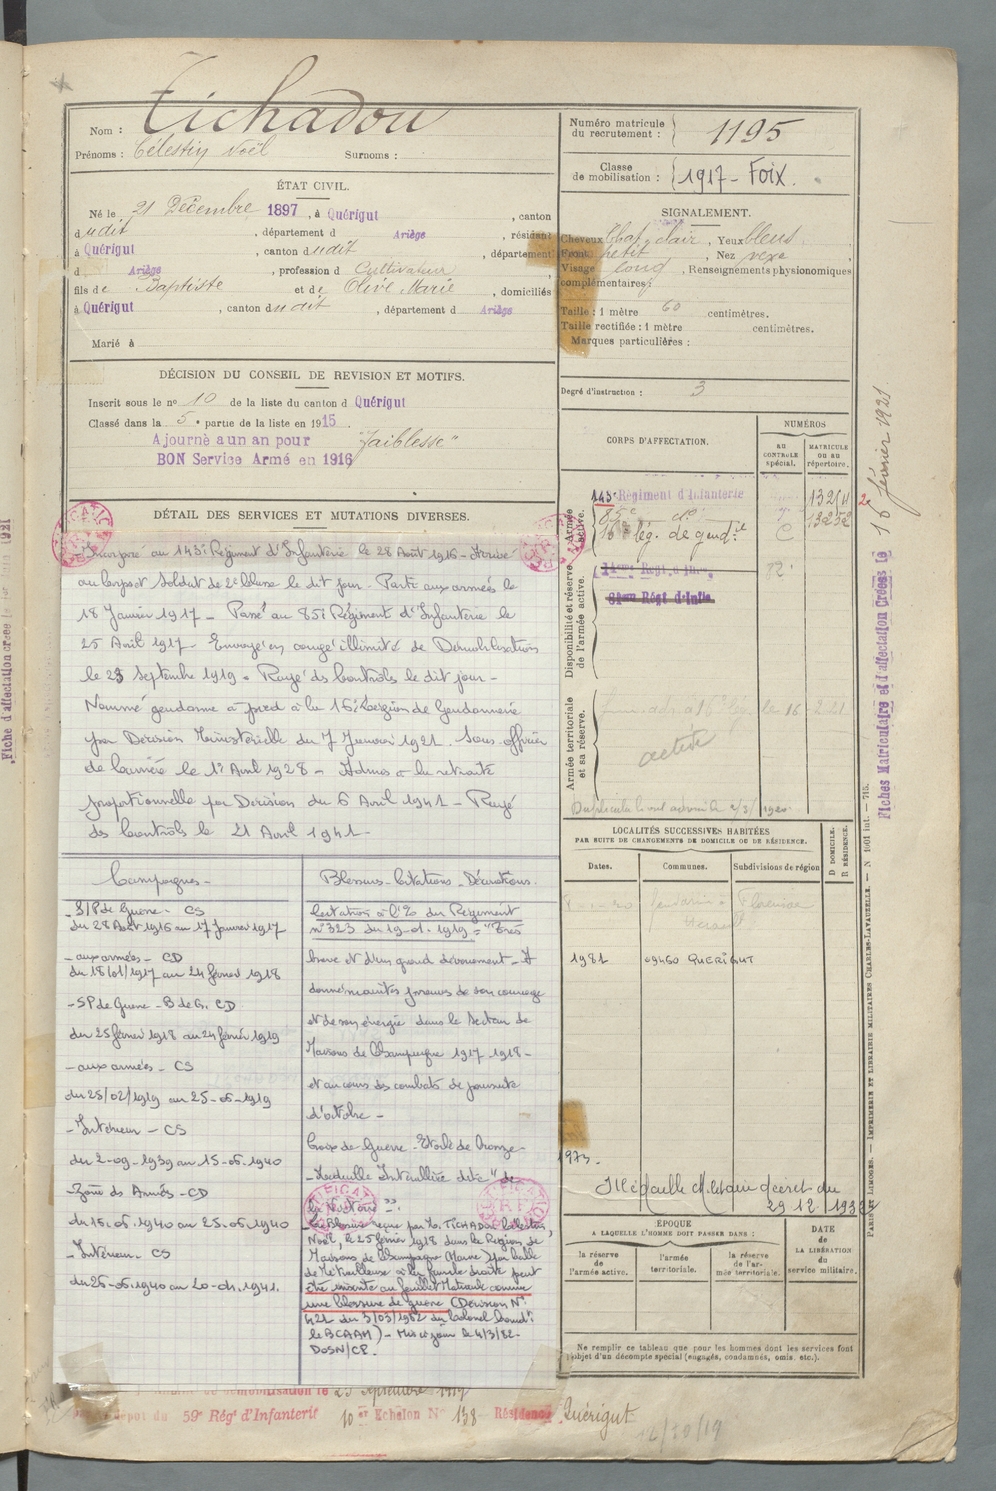 Nom : Tichadou
Prénoms : Célestin Noël Surnoms :
ÉTAT CIVIL.
Né le 21 Décembre 1897, à Quérigut, canton
dudit, département d Ariège, résidant
à Quérigut, canton dudit, département
d Ariège, profession d Cultivateur
fils de Baptiste et de Olive Marie, domiciliés
à Quérigut, canton dudit, département d Ariège
Marié à
DÉCISION DU CONSEIL DE REVISION ET MOTIFS.
Inscrit sous le n° 10 de la liste du canton d Quérigut
Classé dans la 5e partie de la liste en 1915
Ajourné à un an pour "faiblesse"
BON Service Armé en 1916
DÉTAIL DES SERVICES ET MUTATIONS DIVERSES.
Incorporé au 143e Régiment d'Infanterie le 28 Août 1916 - Arrivé
au Corps et Soldat de 2e Classe le dit jour - Parti aux armées le
18 Janvier 1917 - Passé au 85e Régiment d'Infanterie le
25 Avril 1917 - Envoyé en congé illimité de Démobilisation
le 23 Septembre 1919 - Rayé des Contrôles le dit jour -
Nommé gendarme à pied à la 16e Légion de Gendarmerie
par Décision Ministérielle du 7 Janvier 1921. Sous-officier
de carrière le 1er Avril 1928 - Admis à la retraite
proportionnelle par Décision du 6 Avril 1941 - Rayé
des Contrôles le 21 Avril 1941 -
Campagnes -
- S/P de Guerre - CS
du 28 Août 1916 au 17 Janvier 1917
- aux armées - CD
du 18/01/1917 au 24 février 1918
- SP de Guerre - B de G. CD
du 25 février 1918 au 24 février 1919
- aux armées - CS
du 25/02/1919 au
- Intérieur - CS
du 2-09-1939 au 15-05-1940
- Zone des Armées - CD
du 15.05.1940 au 25.06.1940
- Intérieur. CS
du 26-06-1940 au 20-04-1941.
Blessures - Citations - Décorations.
Citation à l'O. du Régiment
n° 323 du 19-01-1919 = "Très
brave et d'un grand dévouement - A
donné maintes preuves de son courage
et de son énergie dans le Secteur de
Maisons de Champagne 1917-1918 -
et au cours des combats de poursuite
d'octobre -
Croix de Guerre - Etoile de Bronze -
- Médaille Interalliée dite "de
la Victoire".
La Blessure reçue par M. TICHADOU Célestin,
Noël, le 25 février 1918 dans la Région de
Maisons de Champagne (Marne) par balle
de Mitrailleuse à la jambe droite peut
être inscrite au feuillet Matricule comme
une blessure de guerre (Décision N°
421 du 3/03/1982 du Colonel Comdt
le BCAAM) - Mis à jour le 4/3/82-
DOSN/CP.
démobilisation le 23 Septembre 1919
dépôt du 59e Régt d'Infanterie 10er Echelon N° 138 Résidence Quérigut
12/30/19
Numéro matricule
du recrutement : 1195
Classe
de mobilisation : 1917 - FOIX.
SIGNALEMENT.
Cheveux Chat. clair, Yeux bleus
Front petit, Nez vexe
Visage long, Renseignements physionomiques
complémentaires :
Taille : 1 mètre 60 centimètres.
Taille rectifiée : 1 mètre centimètres.
Marques particulières :
Degré d'instruction : 3
CORPS D'AFFECTATION.
NUMÉROS
AU CONTROLE spécial.
MATRICULE OU AU répertoire.
Armée active.
143e Régiment d'Infanterie
85e do
16e lég. de gendie
Disponibilité et réserve de l'armée active.
81eme Régt d'Infie
Armée territoriale et sa réserve.
active
LOCALITÉS SUCCESSIVES HABITÉES
PAR SUITE DE CHANGEMENTS DE DOMICILE OU DE RÉSIDENCE.
Dates. Communes. Subdivisions de région
D DOMICILE.
R RÉSIDENCE.
1981 09460 QUERIGUT
1973.
Médaille Militaire décret du
29 12 1932
ÉPOQUE
A LAQUELLE L'HOMME DOIT PASSER DANS :
la réserve de l'armée active.
l'armée territoriale.
la réserve de l'armée territoriale.
DATE
de
LA LIBÉRATION
du
service militaire.
Ne remplir ce tableau que pour les hommes dont les services font
l'objet d'un décompte spécial (engagés, condamnés, omis, etc.).
Fiches Matriculaire et d'affectation Créées le 16 février 1921
PARIS ET LIMOGES. — IMPRIMERIE ET LIBRAIRIE MILITAIRES CHARLES-LAVAUZELLE. — N° 1601 int. — 715.
Fiche d'affectation créée le 1921